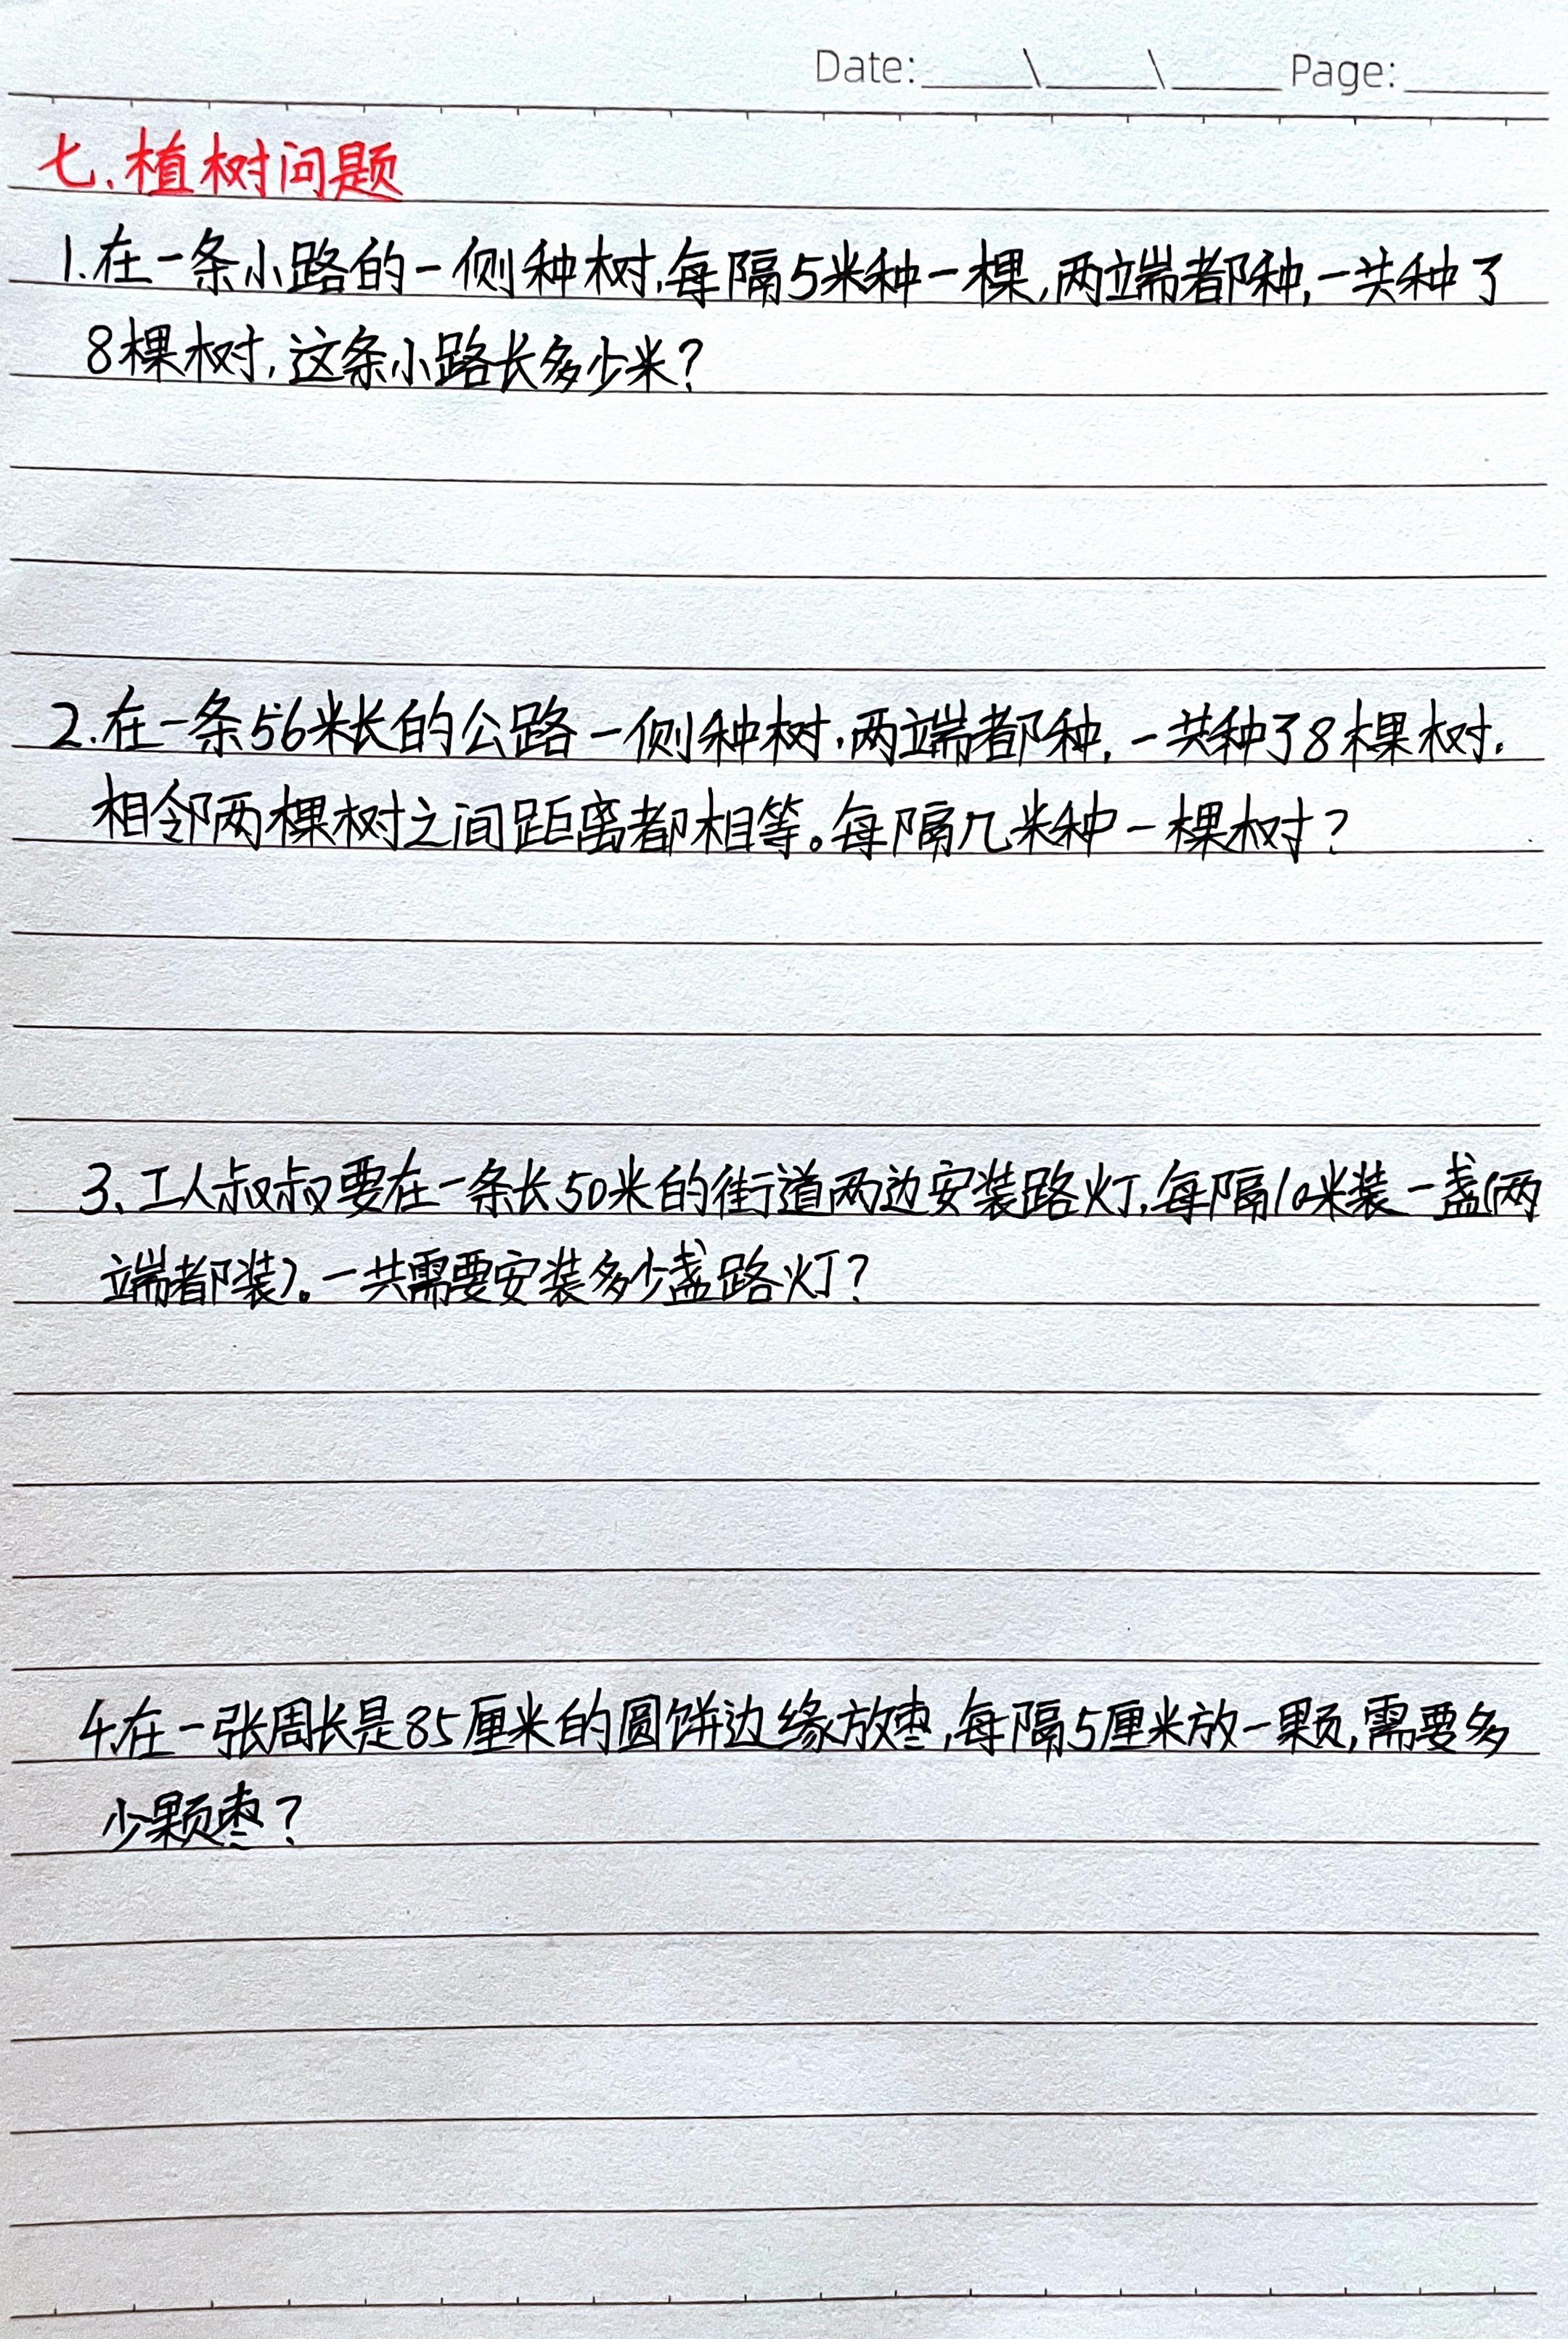 Date: \ \ Page:
七.植树问题
1.在一条小路的一侧种树,每隔5米种一棵,两端都种,一共种了
8棵树,这条小路长多少米?
2.在一条56米长的公路一侧种树,两端都种,一共种了8棵树.
相邻两棵树之间距离都相等。每隔几米种一棵树?
3、工人叔叔要在一条长50米的街道两边安装路灯,每隔10米装一盏(两
端都装)。一共需要安装多少盏路灯?
4.在一张周长是85厘米的圆饼边缘放枣,每隔5厘米放一颗,需要多
少颗枣?